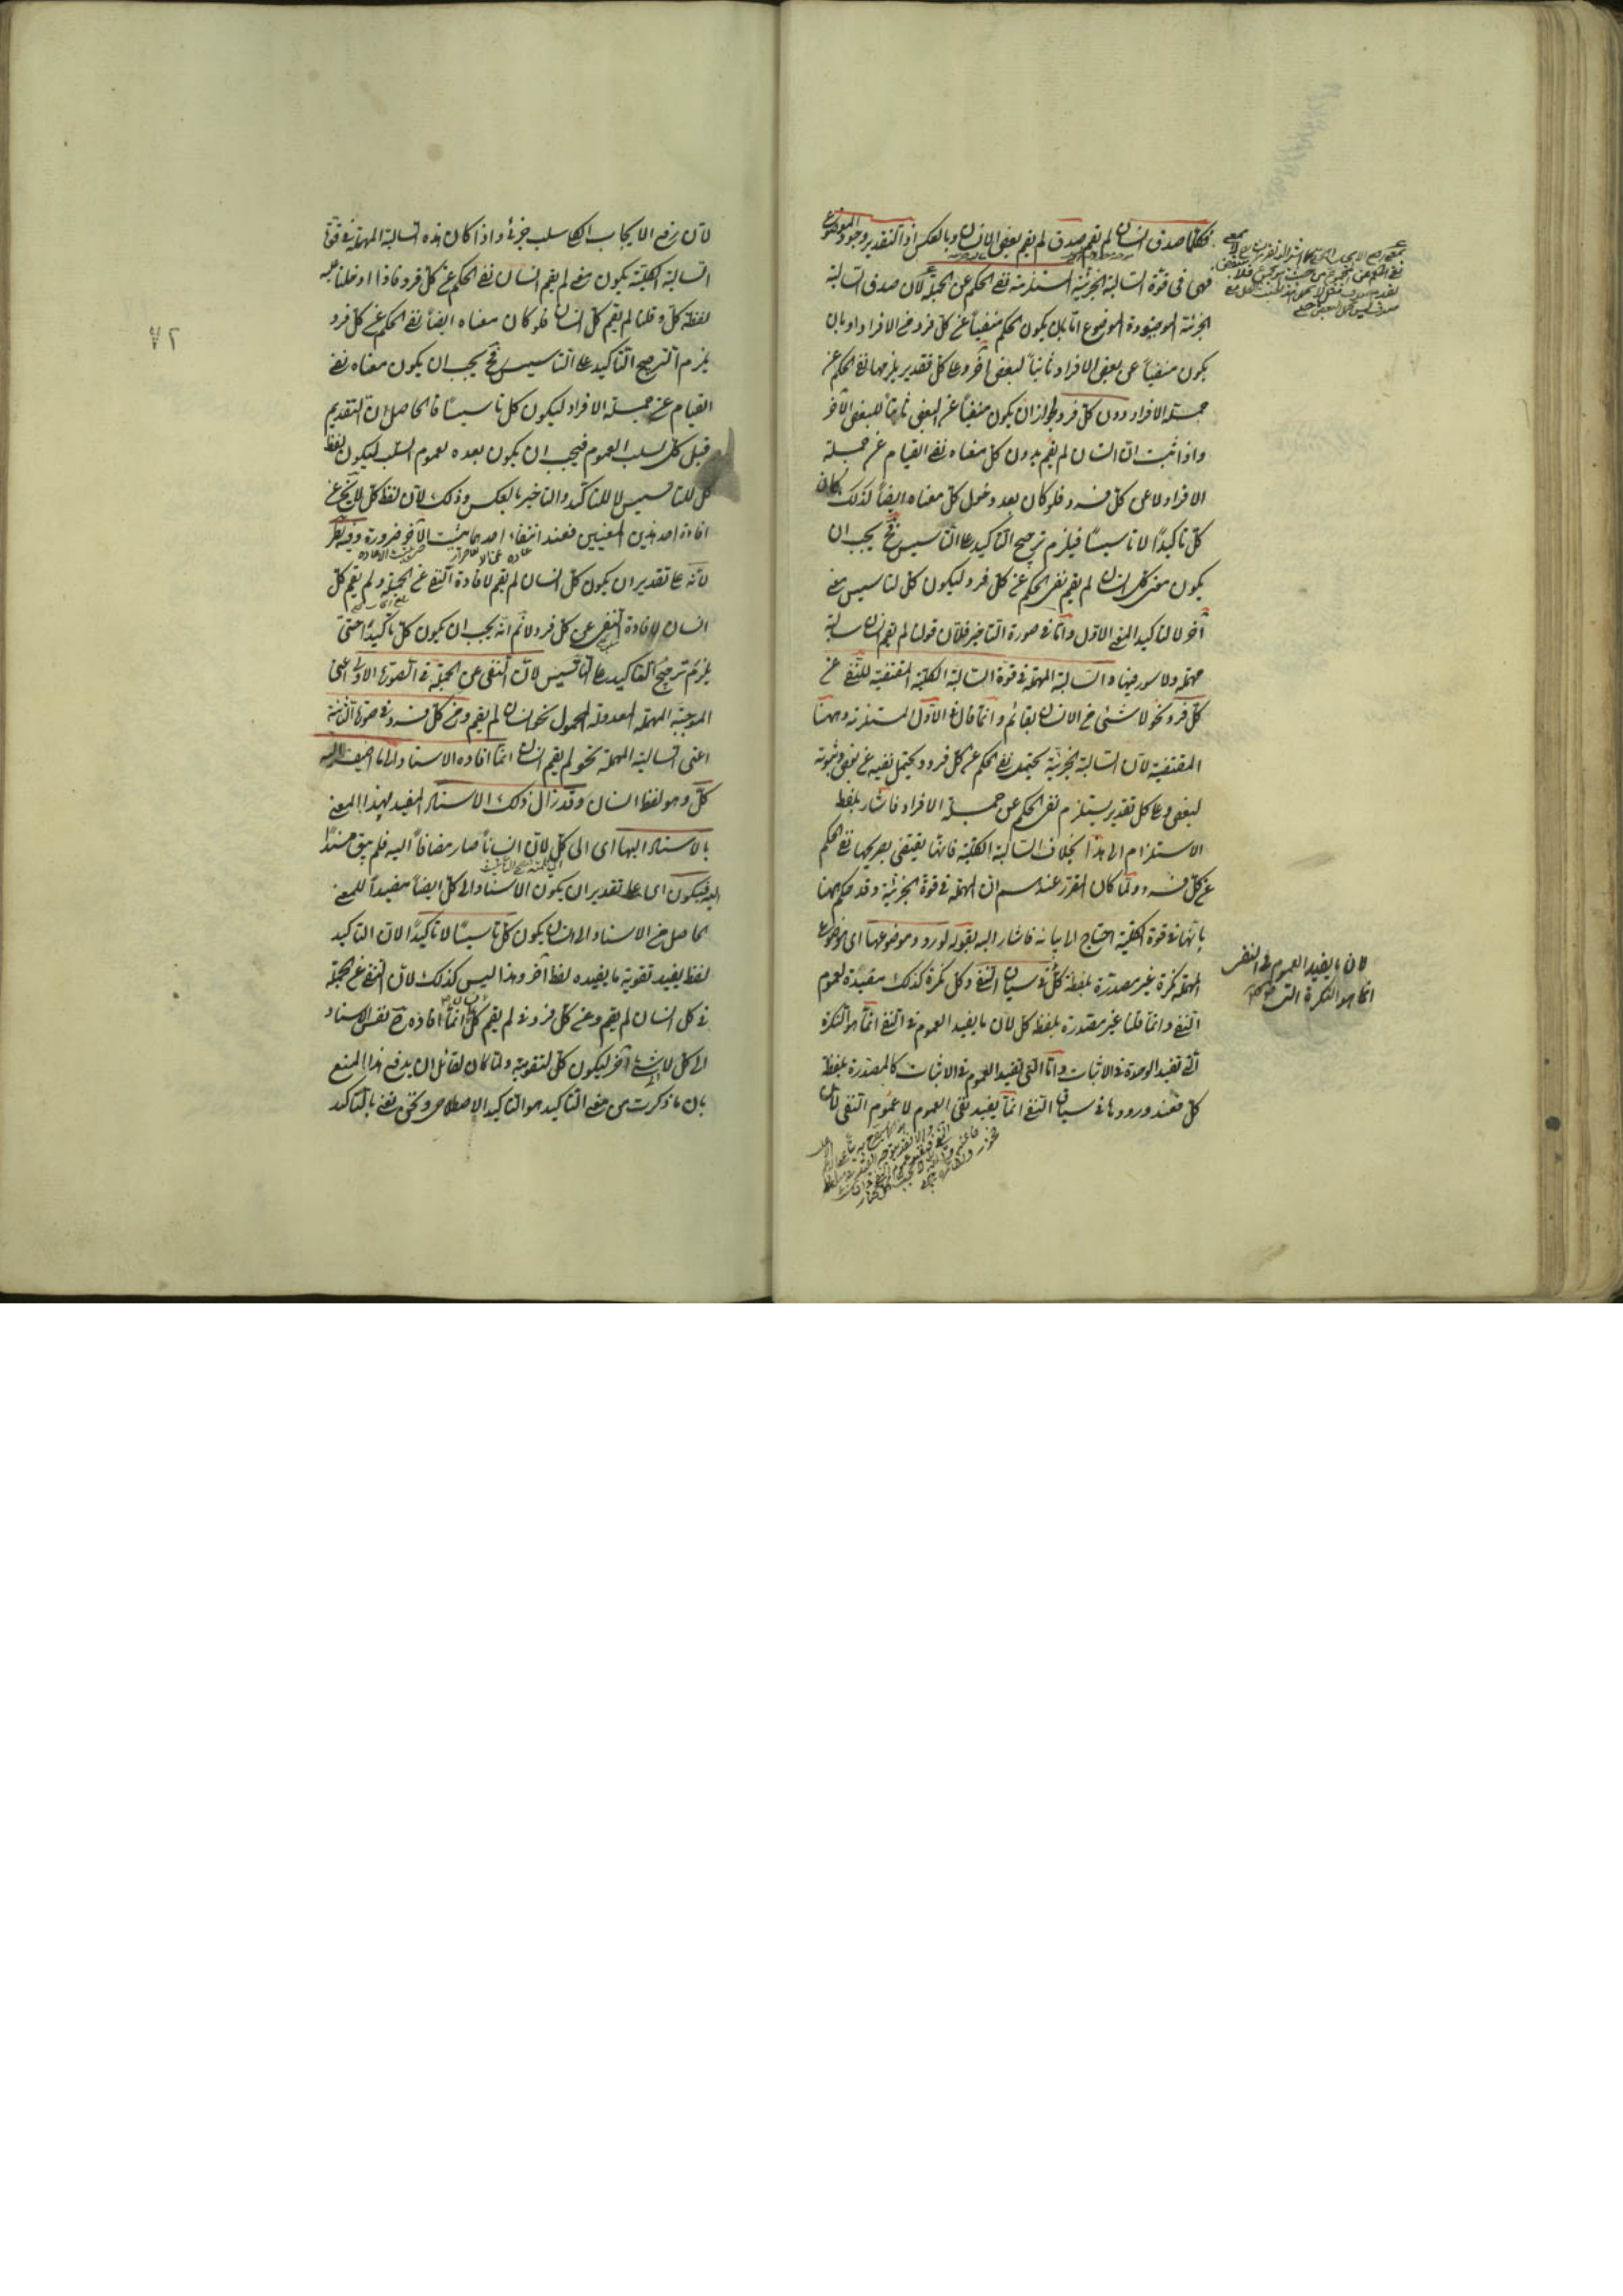 فكلما صدق انسان لم يقم صدق لم يقم بعض الانسان وبالعكس اذ التقدير وجود الموضوع
فهى فى قوة السالبة الجزئية المستلزمة نفى الحكم عن الجملة لان صدق السالبة
الجزئية الموجودة الموضوع اما بان يكون الحكم منفياً عن كل فرد من الافراد او بان
يكون منفياً عن بعض الافراد ثابتاً لبعض آخر وعلى كل تقدير يلزمها نفى الحكم عن
جملة الافراد دون كل فرد لجواز ان يكون منفياً عن البعض ثابتاً للبعض الآخر
واذا ثبت ان انسان لم يقم بدون كل معناه نفى القيام عن جملة
الافراد لا عن كل فرد فلو كان بعد دخول كل معناه ايضاً كذلك كان
كل تأكيداً لا تأسيساً فيلزم ترجيح التأكيد على التأسيس فح يجب ان
يكون معنى كل انسان لم يقم نفى الحكم عن كل فرد ليكون كل لتأسيس معنى
آخر لا لتأكيد المعنى الاول واما فى صورة التأخير فلان قولنا لم يقم انسان سالبة
مهملة ولا سور فيها والسالبة المهملة فى قوة السالبة الكلية المقتضية للنفى عن
كل فرد نحو لا شئ من الانسان بقائم وانما قال فى الاول المستلزمة وههنا
المقتضية لان السالبة الجزئية يحتمل نفى الحكم عن كل فرد ويحتمل نفيه عن بعض وثبوته
لبعض وعلى كل تقدير يستلزم نفى الحكم عن جملة الافراد فاشار بلفظ
الاستلزام الى هذا بخلاف السالبة الكلية فانها يقتضى بصريحها نفى الحكم
عن كل فرد ولما كان المقرر عندهم ان المهملة فى قوة الجزئية وقد حكم ههنا
بانها فى قوة الكلية احتاج الى بيانه فاشار اليه بقوله لورود موضوعها اى موضوع
المهملة نكرة غير مصدرة بلفظة كل فى سياق النفى وكل نكرة كذلك مفيدة لعموم
النفى وانما قلنا غير مصدرة بلفظ كل لان ما يفيد العموم فى النفى انما هو النكرة
التى تفيد الوحدة فى الاثبات واما التى تفيد العموم فى الاثبات كالمصدرة بلفظ
كل فعند ورودها فى سياق النفى انما يفيد نفى العموم لا عموم النفى لان
لان ما يفيد العموم فى النفى
انما هو النكرة التى
٧٢
لان رفع الايجاب الكلى سلب جزئى واذا كان هذه السالبة المهملة فى قوة
السالبة الكلية يكون معنى لم يقم انسان نفى الحكم عن كل فرد فاذا ادخلنا عليه
لفظة كل وقلنا لم يقم كل انسان فلو كان معناه ايضاً نفى الحكم عن كل فرد
يلزم الترجيح التأكيد على التأسيس فح يجب ان يكون معناه نفى
القيام عن جملة الافراد ليكون كل تأسيساً فالحاصل ان التقديم
قبل كل لسلب العموم فيجب ان يكون بعده لعموم السلب ليكون لفظ
كل للتأسيس لا للتأكيد والتأخير بالعكس وذلك لان لفظ كل لا يخ عن
افادة احد هذين المعنيين فعند انتفاء احدهما يثبت الآخر ضرورة وفيه نظر
لانه على تقدير ان يكون كل انسان لم يقم لافادة النفى عن الجملة ولم يقم كل
انسان لافادة النفى عن كل فرد لا نم انه يجب ان يكون كل تأكيداً حتى
يلزم ترجيح التأكيد على التأسيس لان النفى عن الجملة فى الصورة الاولى اعنى
الموجبة المهملة المعدولة المحمول نحو انسان لم يقم وعن كل فرد فى صورة الثانية
اعنى السالبة المهملة نحو لم يقم انسان انما افاده الاسناد الى ما اضيف اليه
كل وهو لفظ انسان وقد زال ذلك الاسناد المفيد لهذا المعنى
بالاسناد اليها اى الى كل لان انساناً صار مضافاً اليه فلم يبق مسنداً
اليه فيكون اى على تقدير ان يكون الاسناد الى كل ايضاً مفيداً للمعنى
الحاصل من الاسناد الى انسان يكون كل تأسيساً لا تأكيداً لان التأكيد
لفظ يفيد تقوية ما يفيده لفظ آخر وهذا ليس كذلك لان النفى عن الجملة
فى كل انسان لم يقم وعن كل فرد فى لم يقم كل انسان انما افاده ح نفس الاسناد
الى كل لا شئ آخر ليكون كل لتقويته ولما كان لقائل ان يدفع هذا المنع
بان ما ذكرت من معنى التأكيد هو التأكيد الاصطلاحى ونحن نعنى بالتأكيد